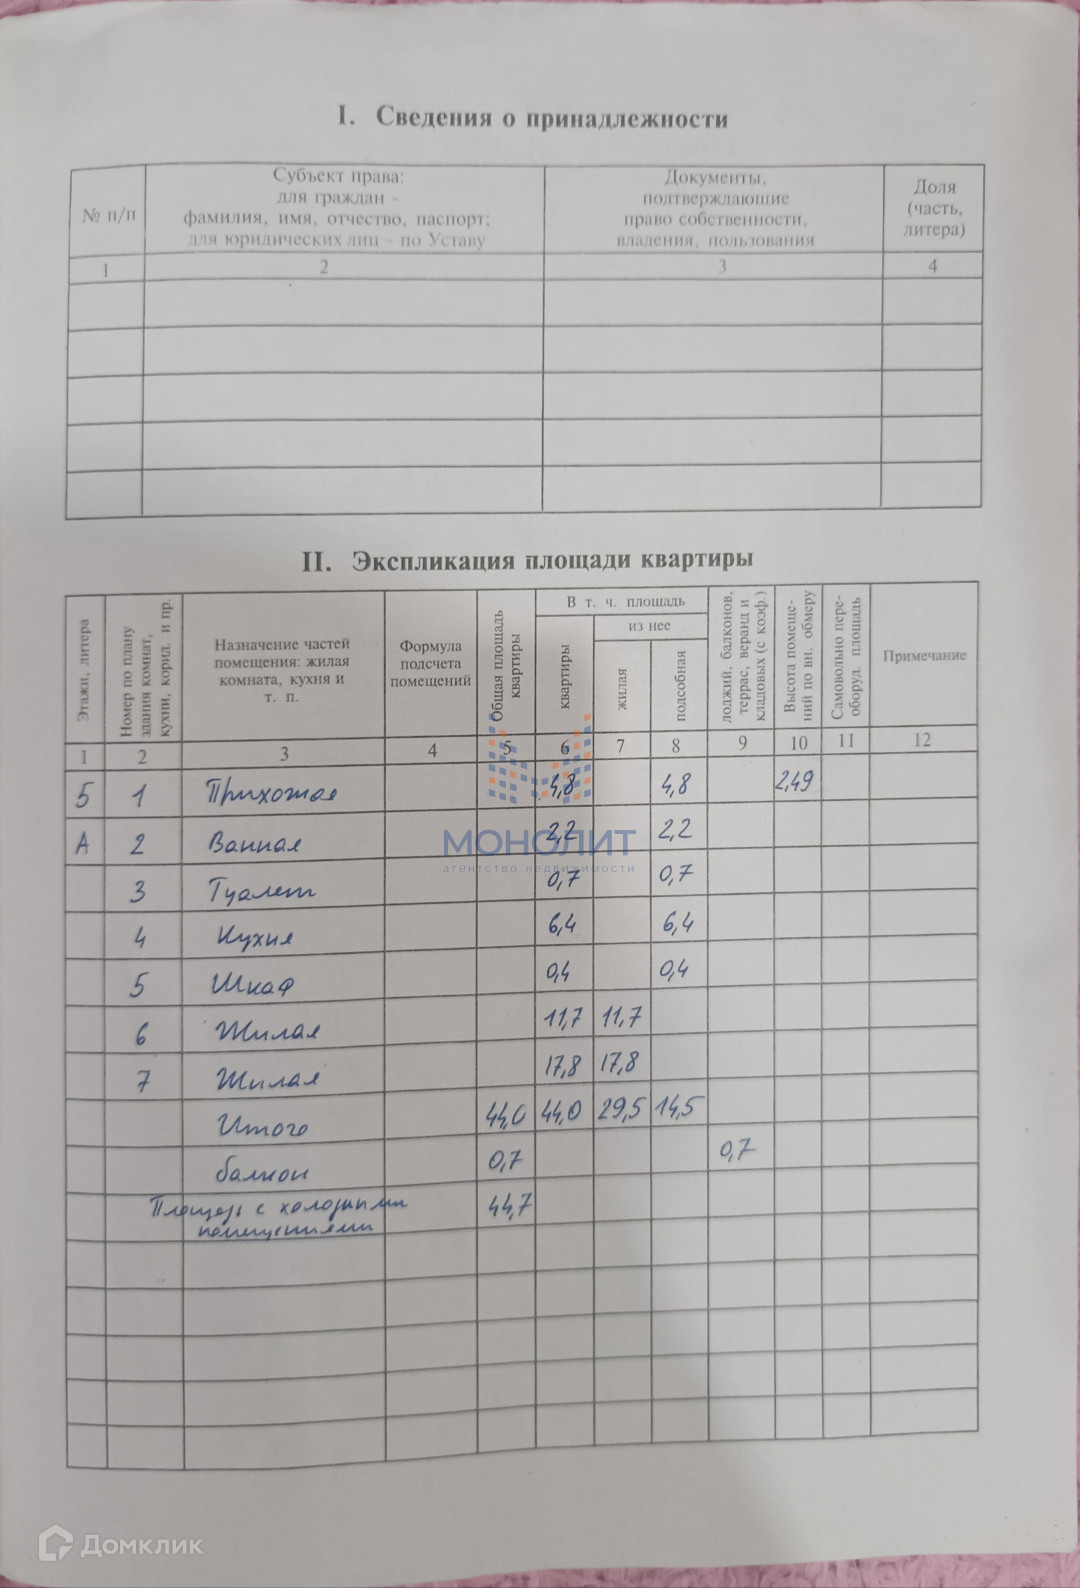 I. Сведения о принадлежности
№ п/п
Субъект права:
для граждан -
фамилия, имя, отчество, паспорт;
для юридических лиц - по Уставу
Документы,
подтверждающие
право собственности,
владения, пользования
Доля
(часть,
литера)
1 2 3 4
II. Экспликация площади квартиры
Этажи, литера
Номер по плану
здания комнат,
кухни, корид. и пр.
Назначение частей
помещения: жилая
комната, кухня и
т. п.
Формула
подсчета
помещений
Общая площадь
квартиры
В т. ч. площадь
квартиры
из нее
жилая
подсобная
лоджий, балконов,
террас, веранд и
кладовых (с коэф.)
Высота помеще-
ний по вн. обмеру
Самовольно пере-
оборуд. площадь
Примечание
1 2 3 4 5 6 7 8 9 10 11 12
5 1 Прихожая 4,8 4,8 2,49
А 2 Ванная 2,2 2,2
3 Туалет 0,7 0,7
4 Кухня 6,4 6,4
5 Шкаф 0,4 0,4
6 Жилая 11,7 11,7
7 Жилая 17,8 17,8
Итого 44,0 44,0 29,5 14,5
балкон 0,7 0,7
Площадь с холодными 44,7
помещениями
МОНОЛИТ
агентство недвижимости
Домклик